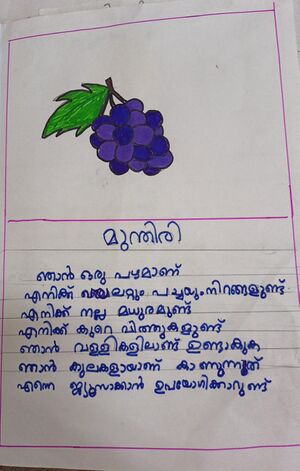 മുന്തിരി
ഞാൻ ഒരു പഴമാണ്
എനിക്ക് പച്ചയും നിറങ്ങളുണ്ട്
എനിക്ക് നല്ല മധുരമുണ്ട്
എനിക്ക് കുറെ വിത്തുകളുണ്ട്
ഞാൻ വള്ളികളിലാണ് ഉണ്ടാകുക
ഞാൻ കുലകളായാണ് കാണുന്നത്
എന്നെ ജ്യൂസാക്കാൻ ഉപയോഗിക്കാറുണ്ട്